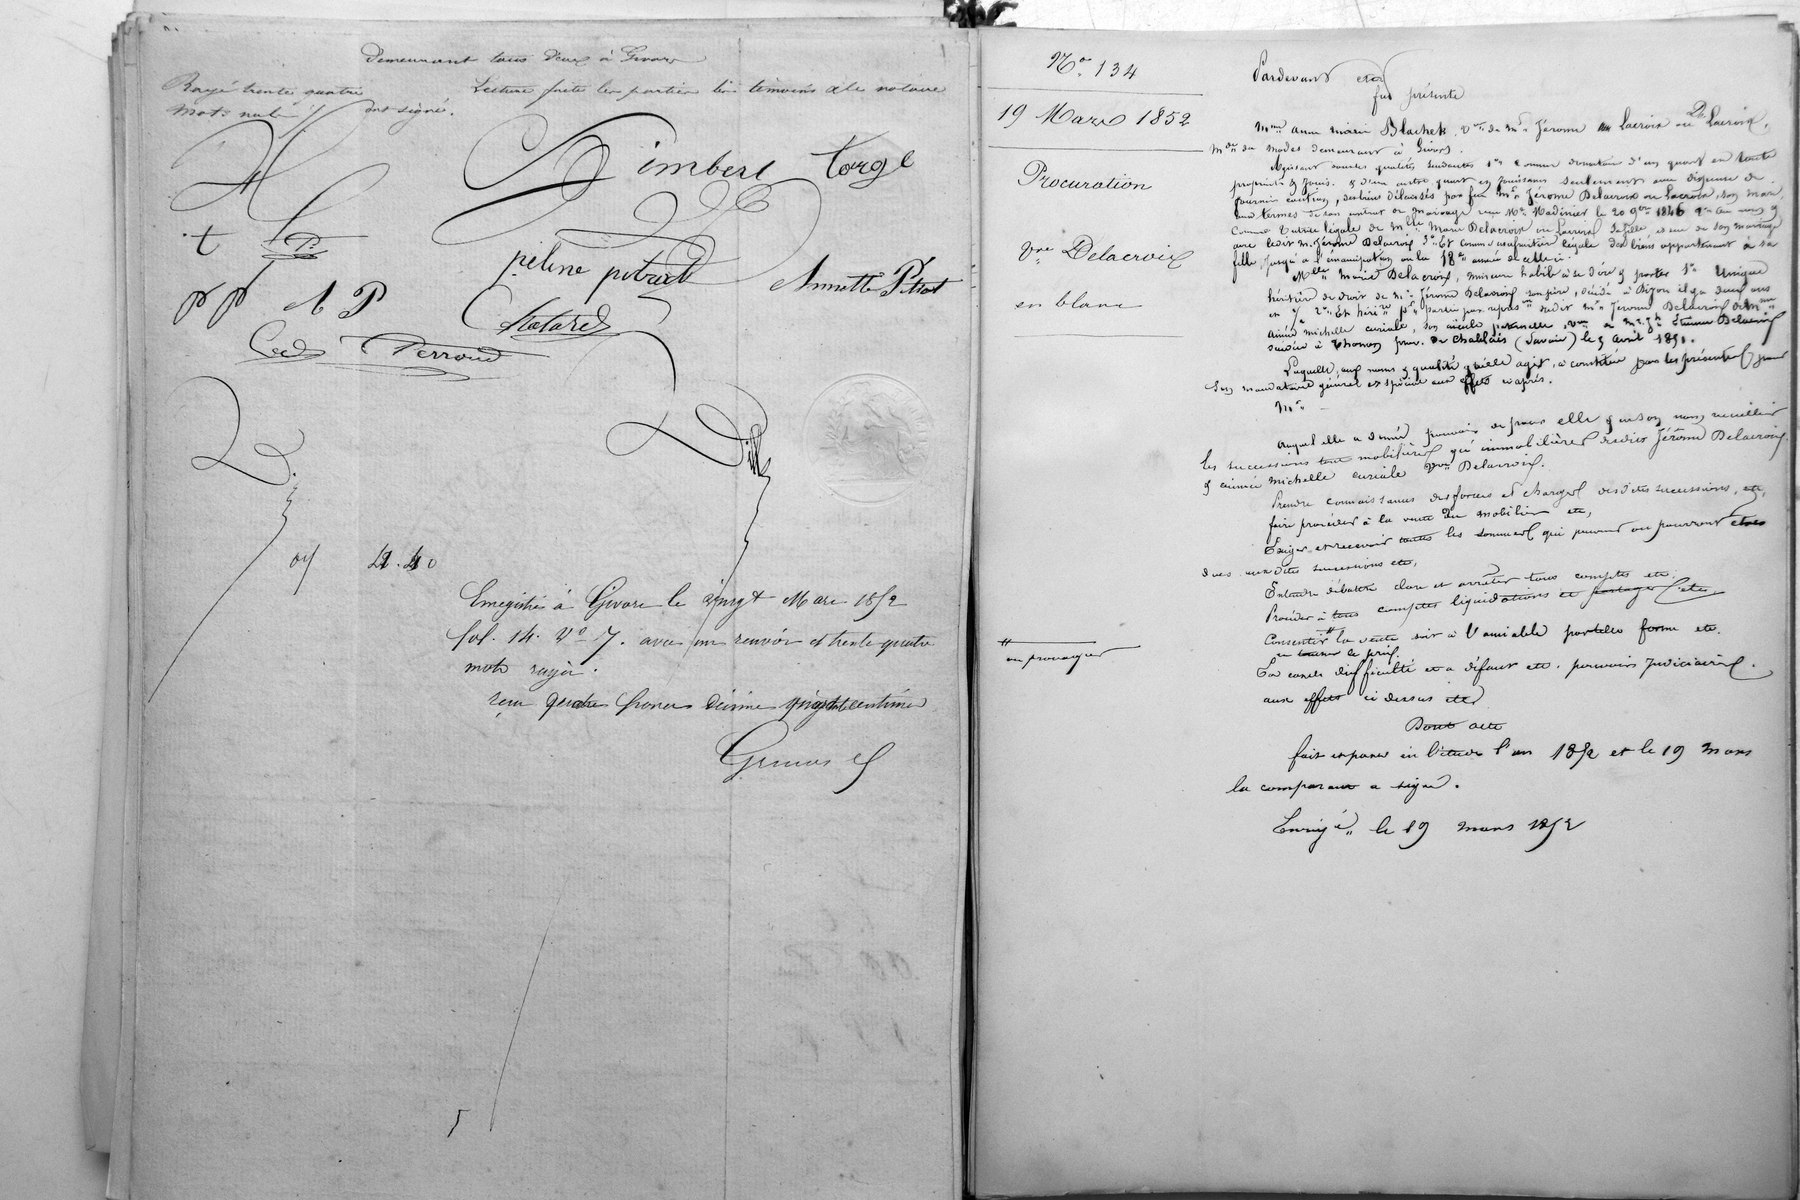 Demeurant tous deux à Givors
Lecture faite les parties les témoins & le notaire
ont signé.
Rayé trente quatre
mots nuls
Gimbert torge
t
péline pitrat Annette Pitrat
pp A P
Perroud
4.40
Enregistré à Givors le vingt Mars 1852
fol. 14. Vo 7. avec un renvoi et trente quatre
mots rayés.
reçu quatre francs décime centimes
N.o 134
19 Mars 1852
Procuration
Vve Delacroix
en blanc
Pardevant etc
fut présente
Mme anne marie Blachek, Vve de Mr Jérome Lacroix ou De Lacroix,
Mde de modes demeurant à Givors.
Agissant sous les qualités suivantes 1o comme donataire d'un quart en toute
propriété & jouis. & d'un autre quart en jouissance seulement avec dispense de
fournir caution, des biens délaissés par feu Mr Jérome Delacroix ou Lacroix, son mari,
aux termes de son contrat de mariage reçu Me Madinier le 20 9bre 1846
Comme tutrice légale de Mlle Marie Delacroix ou Lacroix sa fille, issue de son mariage
avec ledit Mr Jérome Delacroix 3o Et comme usufruitière légale des biens appartenant à sa
fille, jusqu'à l'émancipation ou la 18e année de celle ci.
Mlle Marie Delacroix, mineure habile à se dire & porter 1o Unique
héritière de droit de Mr Jérome Delacroix son père, décédé à Dijon il y a deux ans
2o Et hérre pr partie par représon dudit Mr Jérome Delacroix de Mme
aimée michelle curiale, son aieule paternelle, Vve de Mr Etienne Delacroix
décédée à thonon prov. de Chablais (Savoie) le 5 avril 1851.
Laquelle, aux noms & qualité qu'elle agit, a constitué par les présentes pour
son mandataire général et spécial aux effets ci après.
Mr
auquel elle a donné pouvoir de pour elle & en son nom, recueillir
les successions tant mobilières qu'immobilières desdits Jérome Delacroix
& aimée michelle curiale Vve Delacroix.
Prendre connaissance des forces et charges desdites successions, etc,
faire procéder à la vente du mobilier etc,
Exiger et recevoir toutes les sommes qui peuvent ou pourront etres
dues auxdites successions etc,
Entendre débattre clore et arrêter tous comptes etc
Procéder à tous comptes liquidations et partages etc
Consentir # la vente soit à l'amiable
en toucher le prix.
# ou provoquer
En cas de difficulté et a défaut etc. pouvoirs judiciaires.
aux effets ci dessus etc
Dont acte
fait et passé en l'étude l'an 1852 et le 19 mars
la comparante a signé.
Enregé le 19 mars 1852